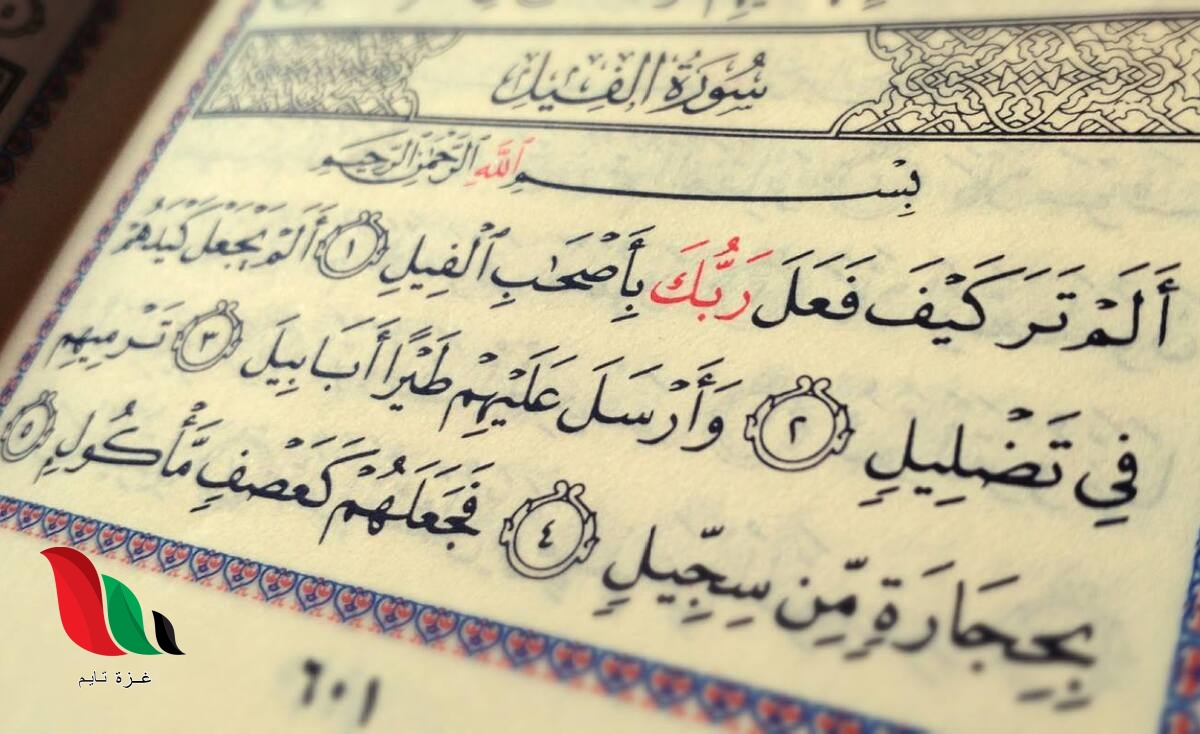 سُورَةُ الفِيلِ
بِسْمِ اللَّهِ الرَّحْمَٰنِ الرَّحِيمِ
أَلَمْ تَرَ كَيْفَ فَعَلَ رَبُّكَ بِأَصْحَٰبِ الْفِيلِ ١ أَلَمْ يَجْعَلْ كَيْدَهُمْ
فِي تَضْلِيلٍ ٢ وَأَرْسَلَ عَلَيْهِمْ طَيْرًا أَبَابِيلَ ٣ تَرْمِيهِم
بِحِجَارَةٍ مِّن سِجِّيلٍ ٤ فَجَعَلَهُمْ كَعَصْفٍ مَّأْكُولٍ ٥
غزة تايم
٦٠١